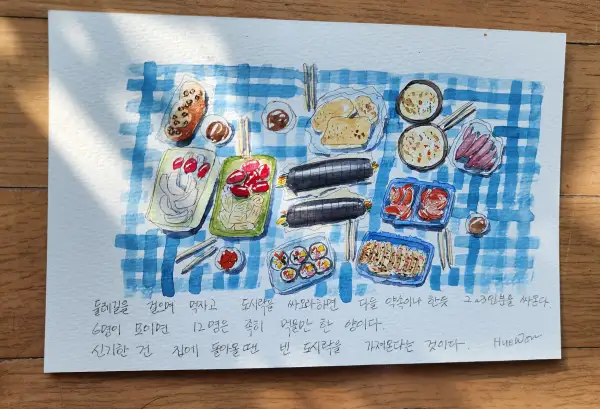 둘레길을 걸으며 먹자고 도시락을 싸오라하면 다들 약속이나 한듯 2~3인분을 싸온다
6명이 모이면 12명은 족히 먹을만 한 양이다.
신기한 건 집에 돌아올땐 빈 도시락을 가져온다는 것이다.
HueWon